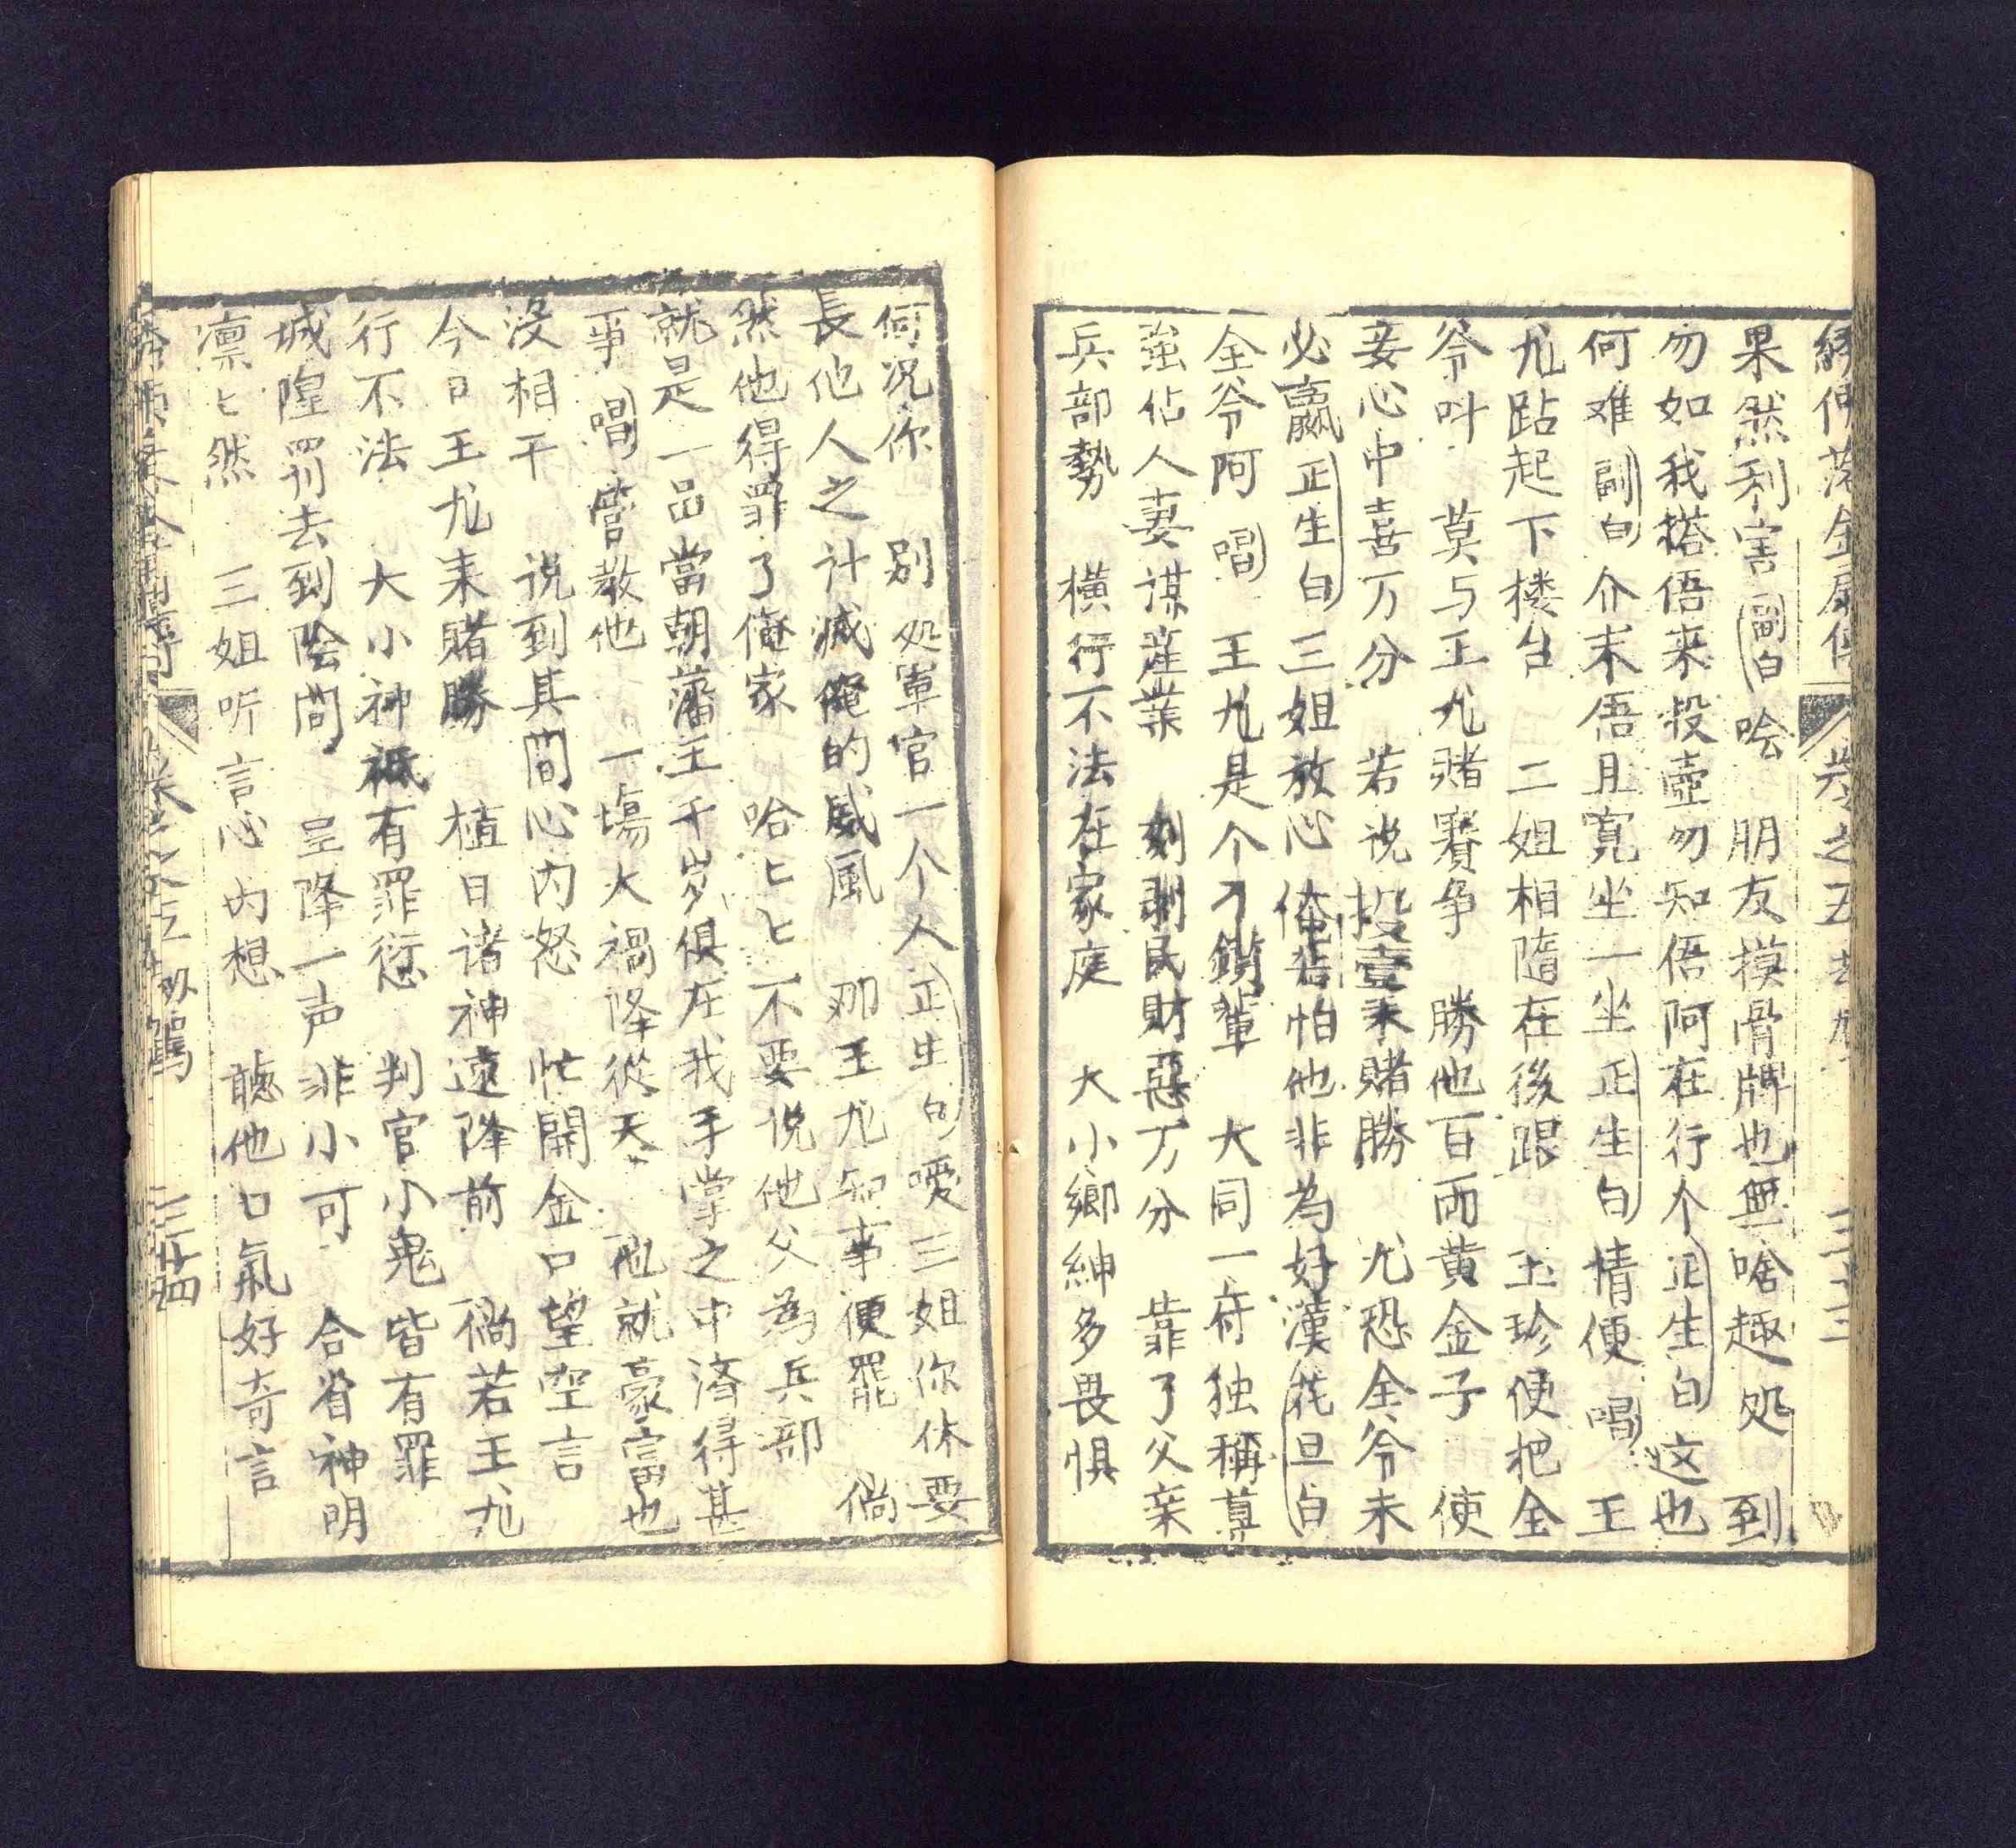 卷之五 三十三
果然利害(副白)哙 朋友摸骨牌也無啥趣処 到
勿如我搭俉来投壺勿知俉阿在行个(正生白)这也
何难(副白)介末俉且寛坐一坐(正生白)情便(唱) 王
尤跕起下楼台 二姐相隨在後跟 玉珍便把全
爷叶 莫与王尤賭賽争 勝他百両黄金子 使
妾心中喜万分 若说投壹来賭勝 尤恐全爷未
必贏(正生白)三姐放心 俺若怕他非為好漢(花旦白)
全爷阿(唱) 王尤是个刁鑽輩 大同一府独稱尊
強佔人妻谋産業 刻剥民財惡万分 靠了父亲
兵部勢 横行不法在家庭 大小鄉紳多畏惧
何况你 别処軍官一个人(正生白)嗳三姐你休要
長他人之计减俺的威風 那王尤知事便罷 倘
然他得罪了俺家 哈匕匕不要说他父為兵部
就是一品當朝藩王千岁俱在我手掌之中済得甚
事(唱)管教他 一塲大禍降從天 他就豪富也
没相干 说到其間心内怒 忙開金口望空言
今日王尤来賭勝 植日诸神遠降前 倘若王尤
行不法 大小神祇有罪愆 判官小鬼皆有罪
城隍罰去到陰間 呈降一声非小可 合省神明
凛匕然 三姐听言心内想 聽他口氣好奇言
卷之五 三十四